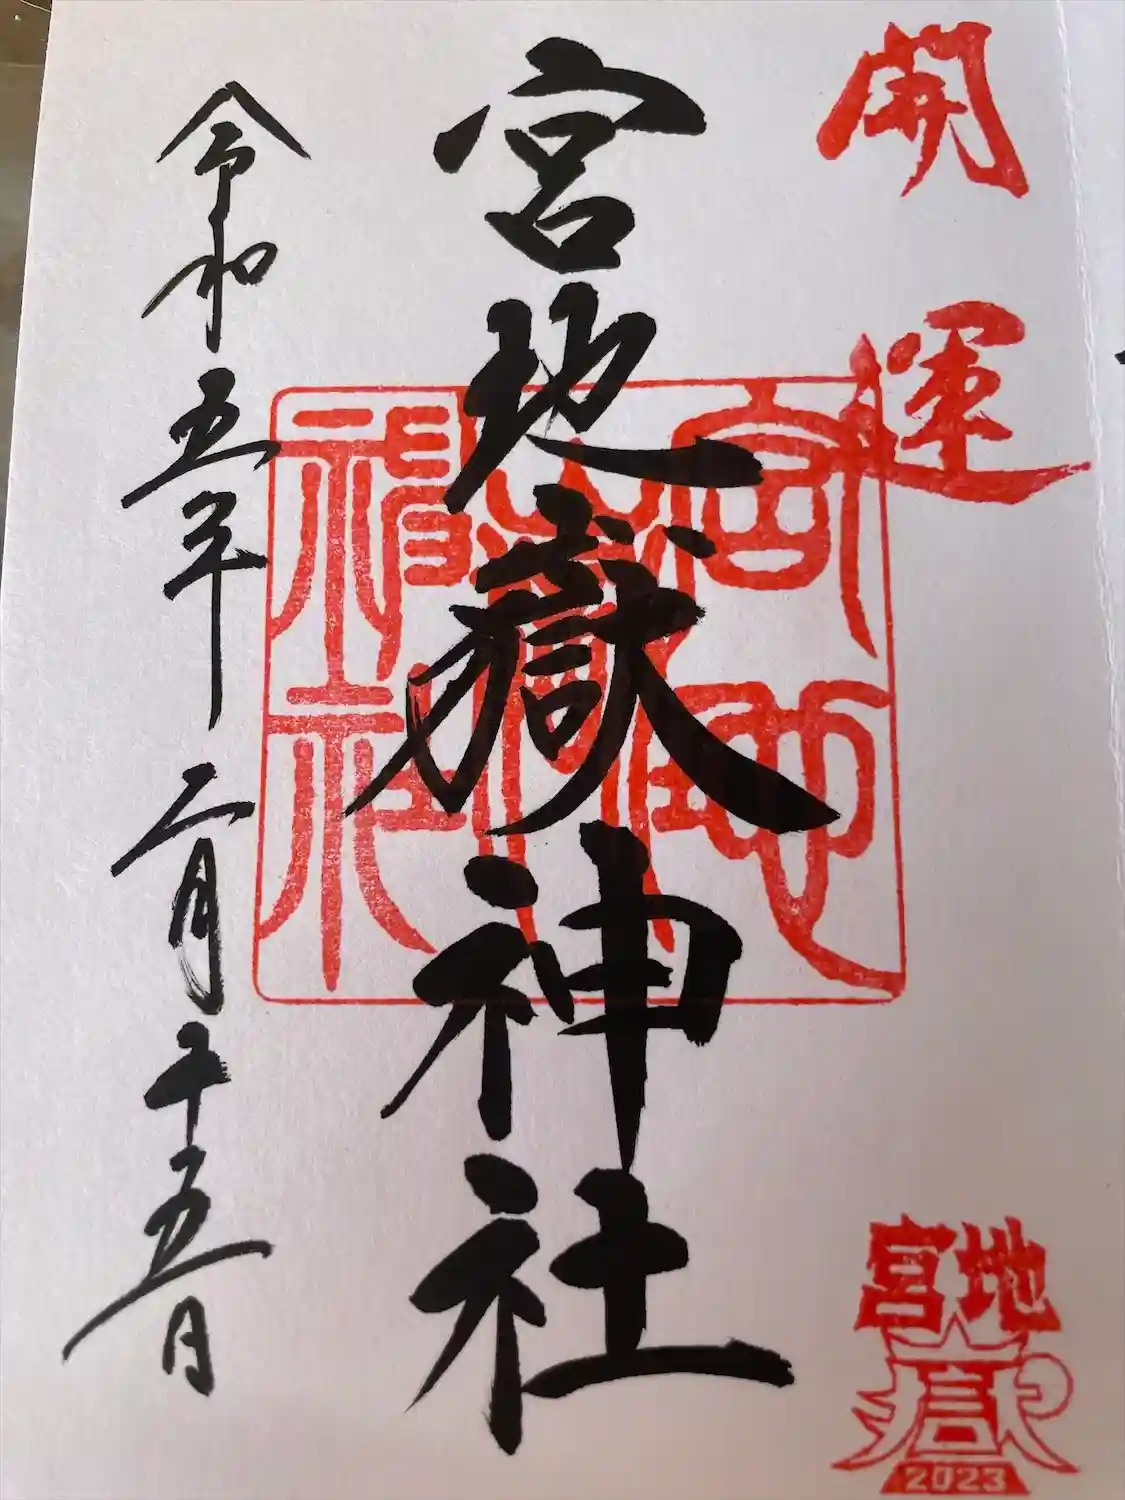 開運
宮地嶽神社
宮地
嶽
神社
令和五年二月十五日
宮地
嶽
2023